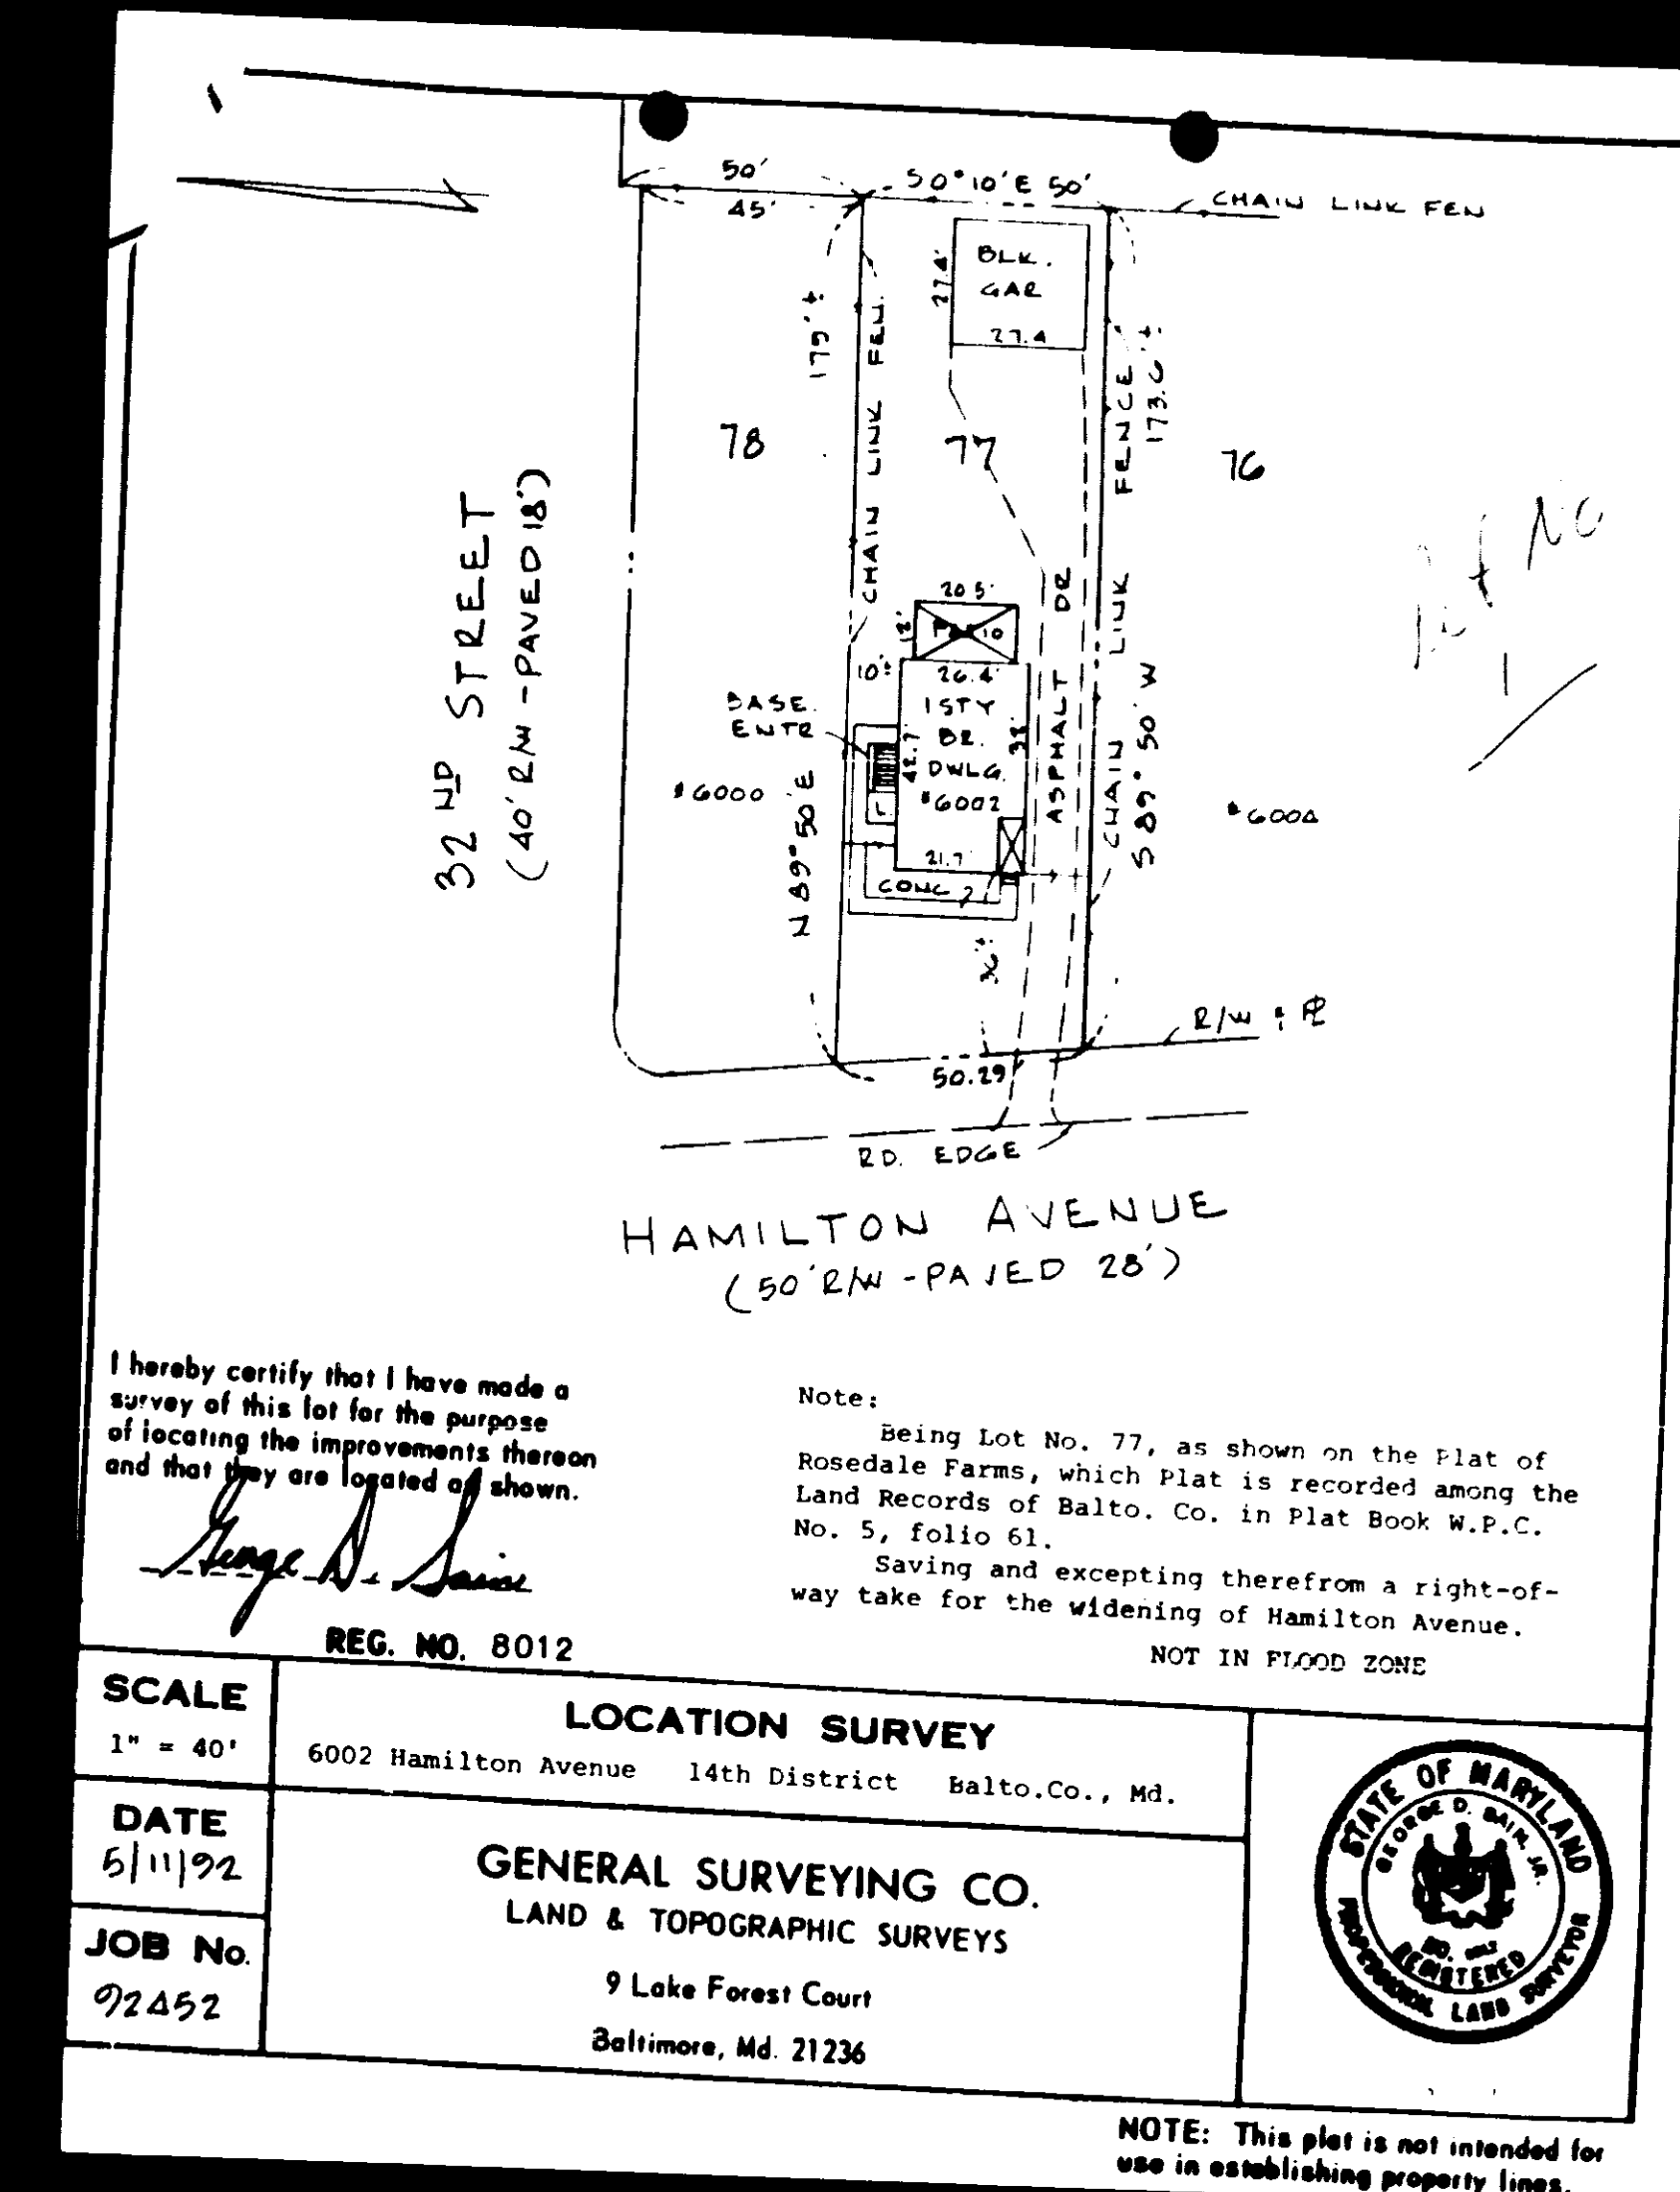 50'
S0°10'E 50'
45'
CHAIN LINK FEN
BLK.
GAR
27.4'
27.4
175'±
CHAIN LINK FEN.
CHAIN LINK FENCE
173.6'±
78
77
76
32ND STREET
(40' R/W - PAVED 18')
20.5'
12'
PATIO
10'±
26.4'
1 STY
BR.
DWLG.
#6002
42.7'
38'
BASE.
ENTR
ASPHALT DR
#6000
#6004
N 89° 50' E
CHAIN LINK
S 89° 50' W
21.7'
CONC
36'±
R/W & PL
50.29
RD. EDGE
HAMILTON AVENUE
(50' R/W - PAVED 28')
I hereby certify that I have made a
survey of this lot for the purpose
of locating the improvements thereon
and that they are located as shown.
REG. NO. 8012
Note:
Being Lot No. 77, as shown on the Plat of
Rosedale Farms, which Plat is recorded among the
Land Records of Balto. Co. in Plat Book W.P.C.
No. 5, folio 61.
Saving and excepting therefrom a right-of-
way take for the widening of Hamilton Avenue.
NOT IN FLOOD ZONE
SCALE
1" = 40'
LOCATION SURVEY
6002 Hamilton Avenue 14th District Balto.Co., Md.
DATE
5/11/92
JOB No.
92452
GENERAL SURVEYING CO.
LAND & TOPOGRAPHIC SURVEYS
9 Lake Forest Court
Baltimore, Md. 21236
STATE OF MARYLAND
GEORGE D. BAIN, JR.
NO.
REGISTERED
PROFESSIONAL LAND SURVEYOR
NOTE: This plat is not intended for
use in establishing property lines.